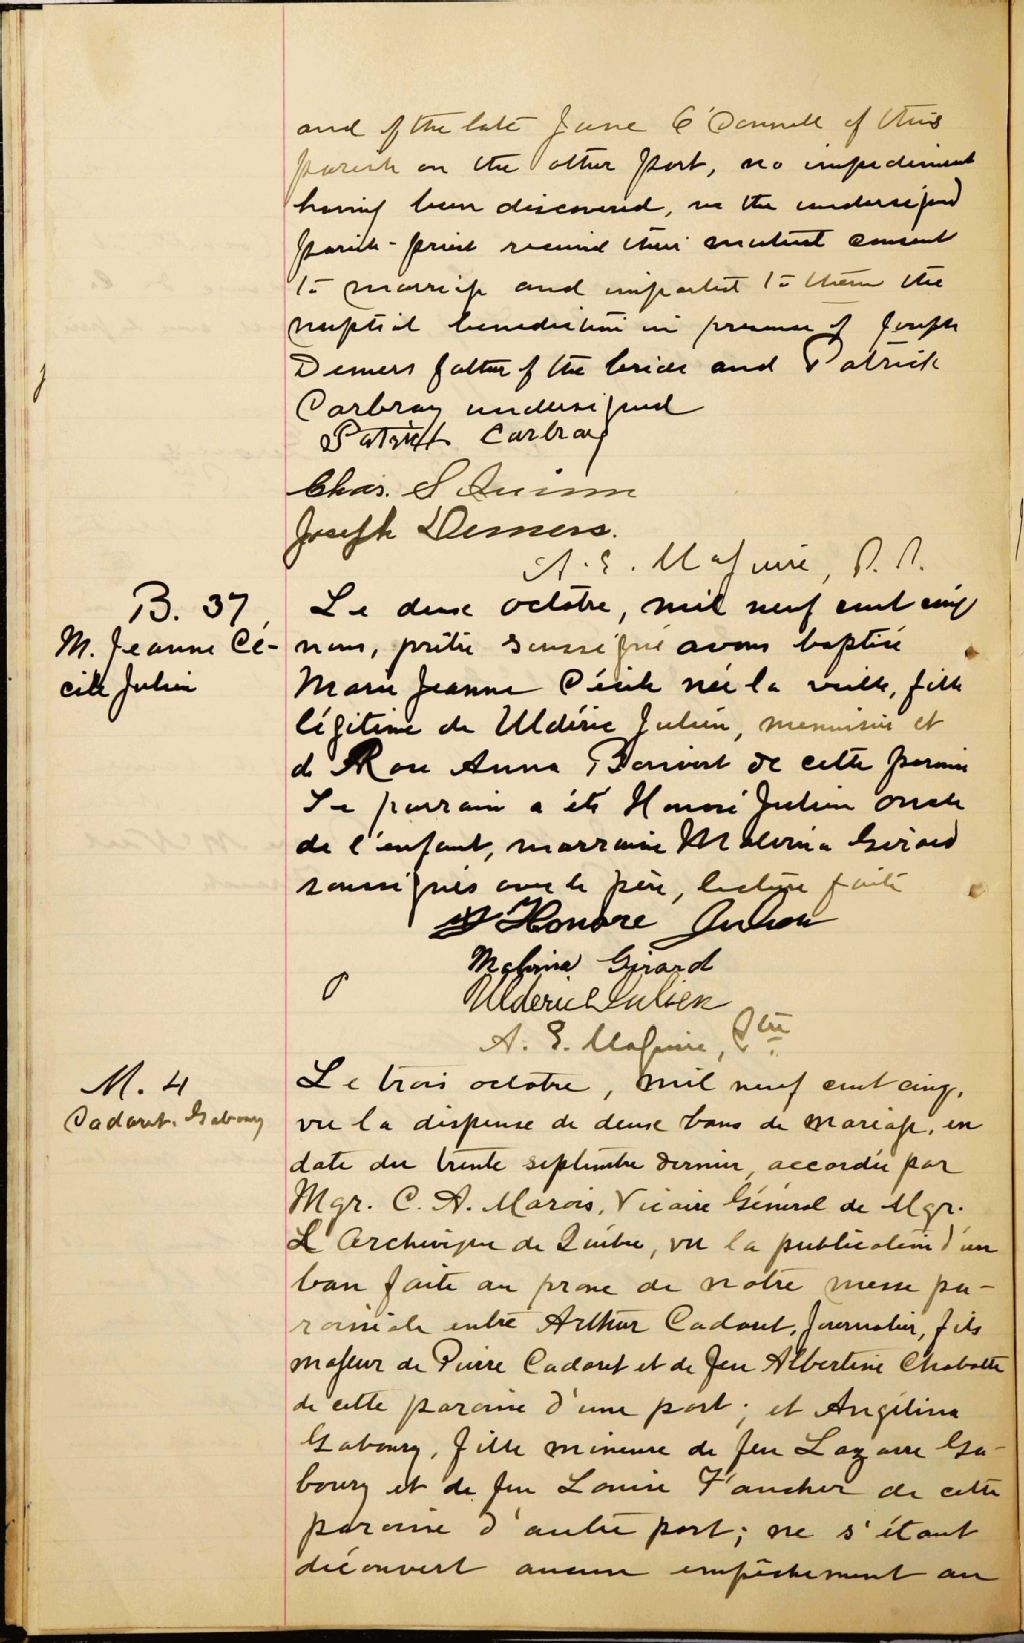 and of the late Jane O'Donnell of this
parish on the other part, no impediment
having been discovered, we the undersigned
parish-priest received their mutual consent
to marriage and imparted to them the
nuptial benediction in presence of Joseph
Demers father of the bride and Patrick
Carbray undersigned
Patrick Carbray
Chas. S Quinn
Joseph Demers.
A. E. Maguire, P. P.
B. 37
M. Jeanne Cé-
cile Julien
Le deux octobre, mil neuf cent cinq
nous, prêtre soussigné avons baptisé
Marie Jeanne Cécile née la veille, fille
légitime de Uldéric Julien, menuisier et
de Rose Anna Boisvert de cette paroisse
Le parrain a été Honoré Julien oncle
de l'enfant, marraine Malvina Girard
soussignés avec le père, lecture faite
Honore Julien
Malvina Girard
Ulderic Julien
A. E. Maguire, Ptre
M. 4
Cadoret. Gaboury
Le trois octobre, mil neuf cent cinq,
vu la dispense de deux bans de mariage, en
date du trente septembre dernier, accordée par
Mgr. C. A. Marois, Vicaire Général de Mgr.
L'Archevêque de Québec, vu la publication d'un
ban faite au prone de notre messe pa-
roissiale entre Arthur Cadoret, journalier, fils
majeur de Pierre Cadoret et de feu Albertine Chabotte
de cette paroisse d'une part; et Angélina
Gaboury, fille mineure de feu Lazarre Ga-
boury et de feu Louise Faucher de cette
paroisse d'autre part; ne s'étant
découvert aucun empêchement au